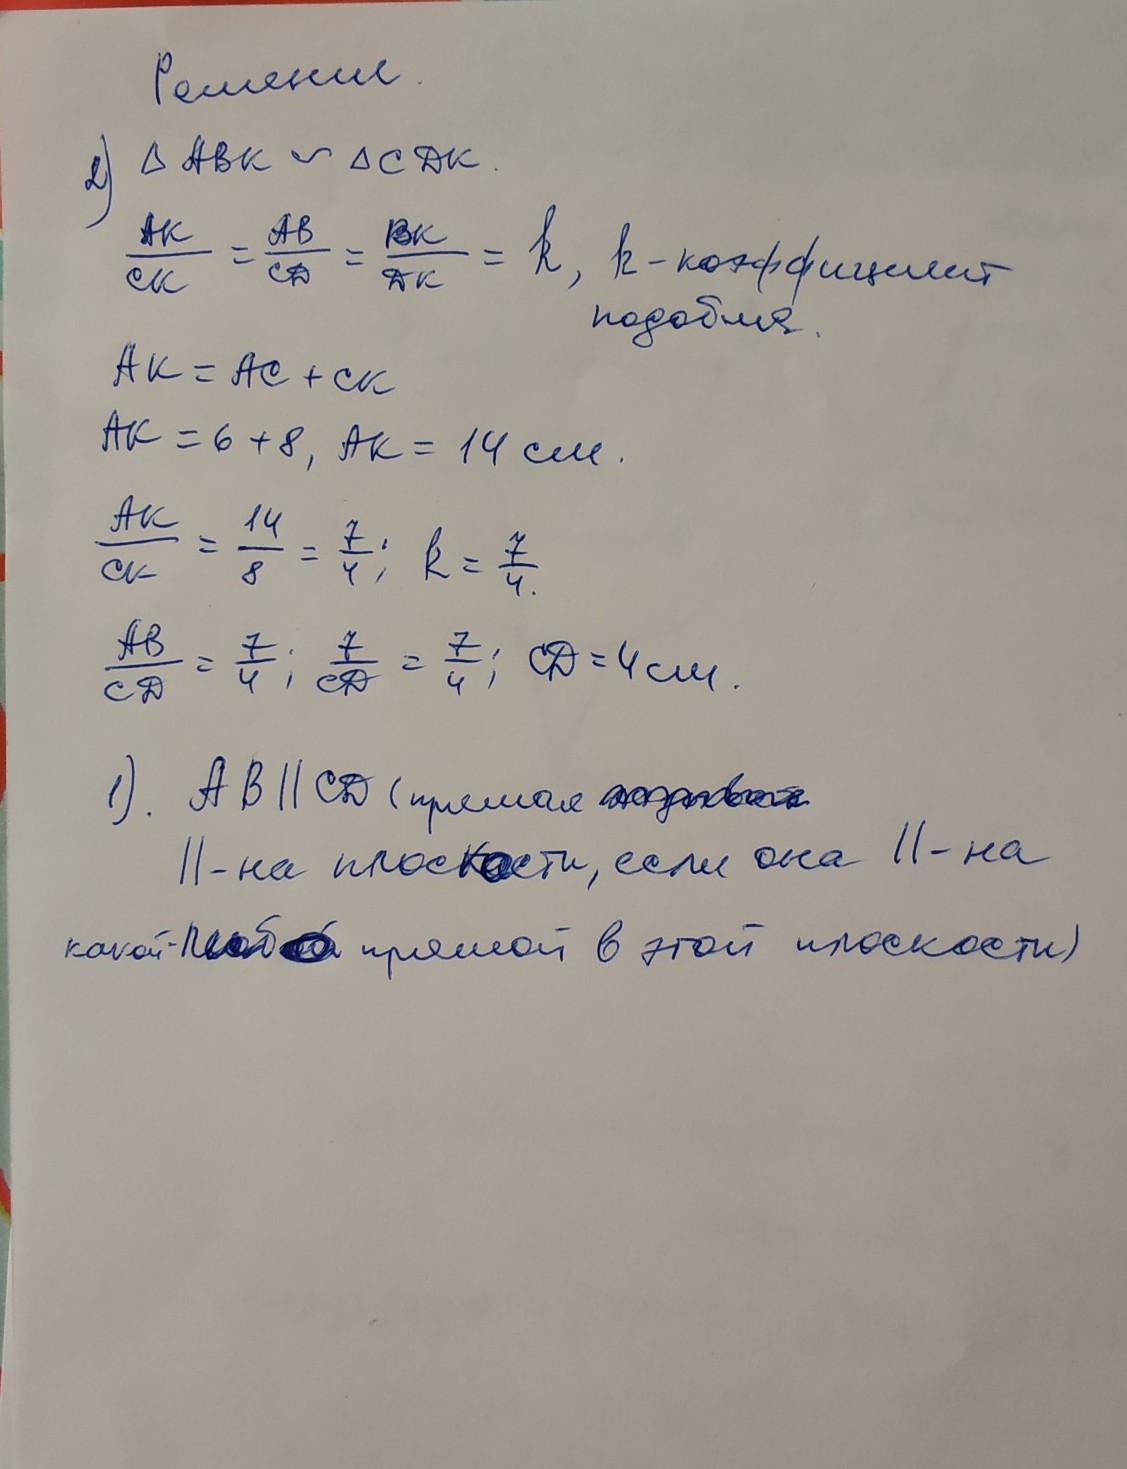 Решение.
2) △ ABK ∽ △ CDK.
AK/CK = AB/CD = BK/DK = k, k - коэффициент
подобия.
AK = AC + CK
AK = 6 + 8, AK = 14 см.
AK/CK = 14/8 = 7/4; k = 7/4.
AB/CD = 7/4; 7/CD = 7/4; CD = 4 см.
1). AB || CD (прямая
||-на плоскости, если она ||-на
какой-либо прямой в этой плоскости)